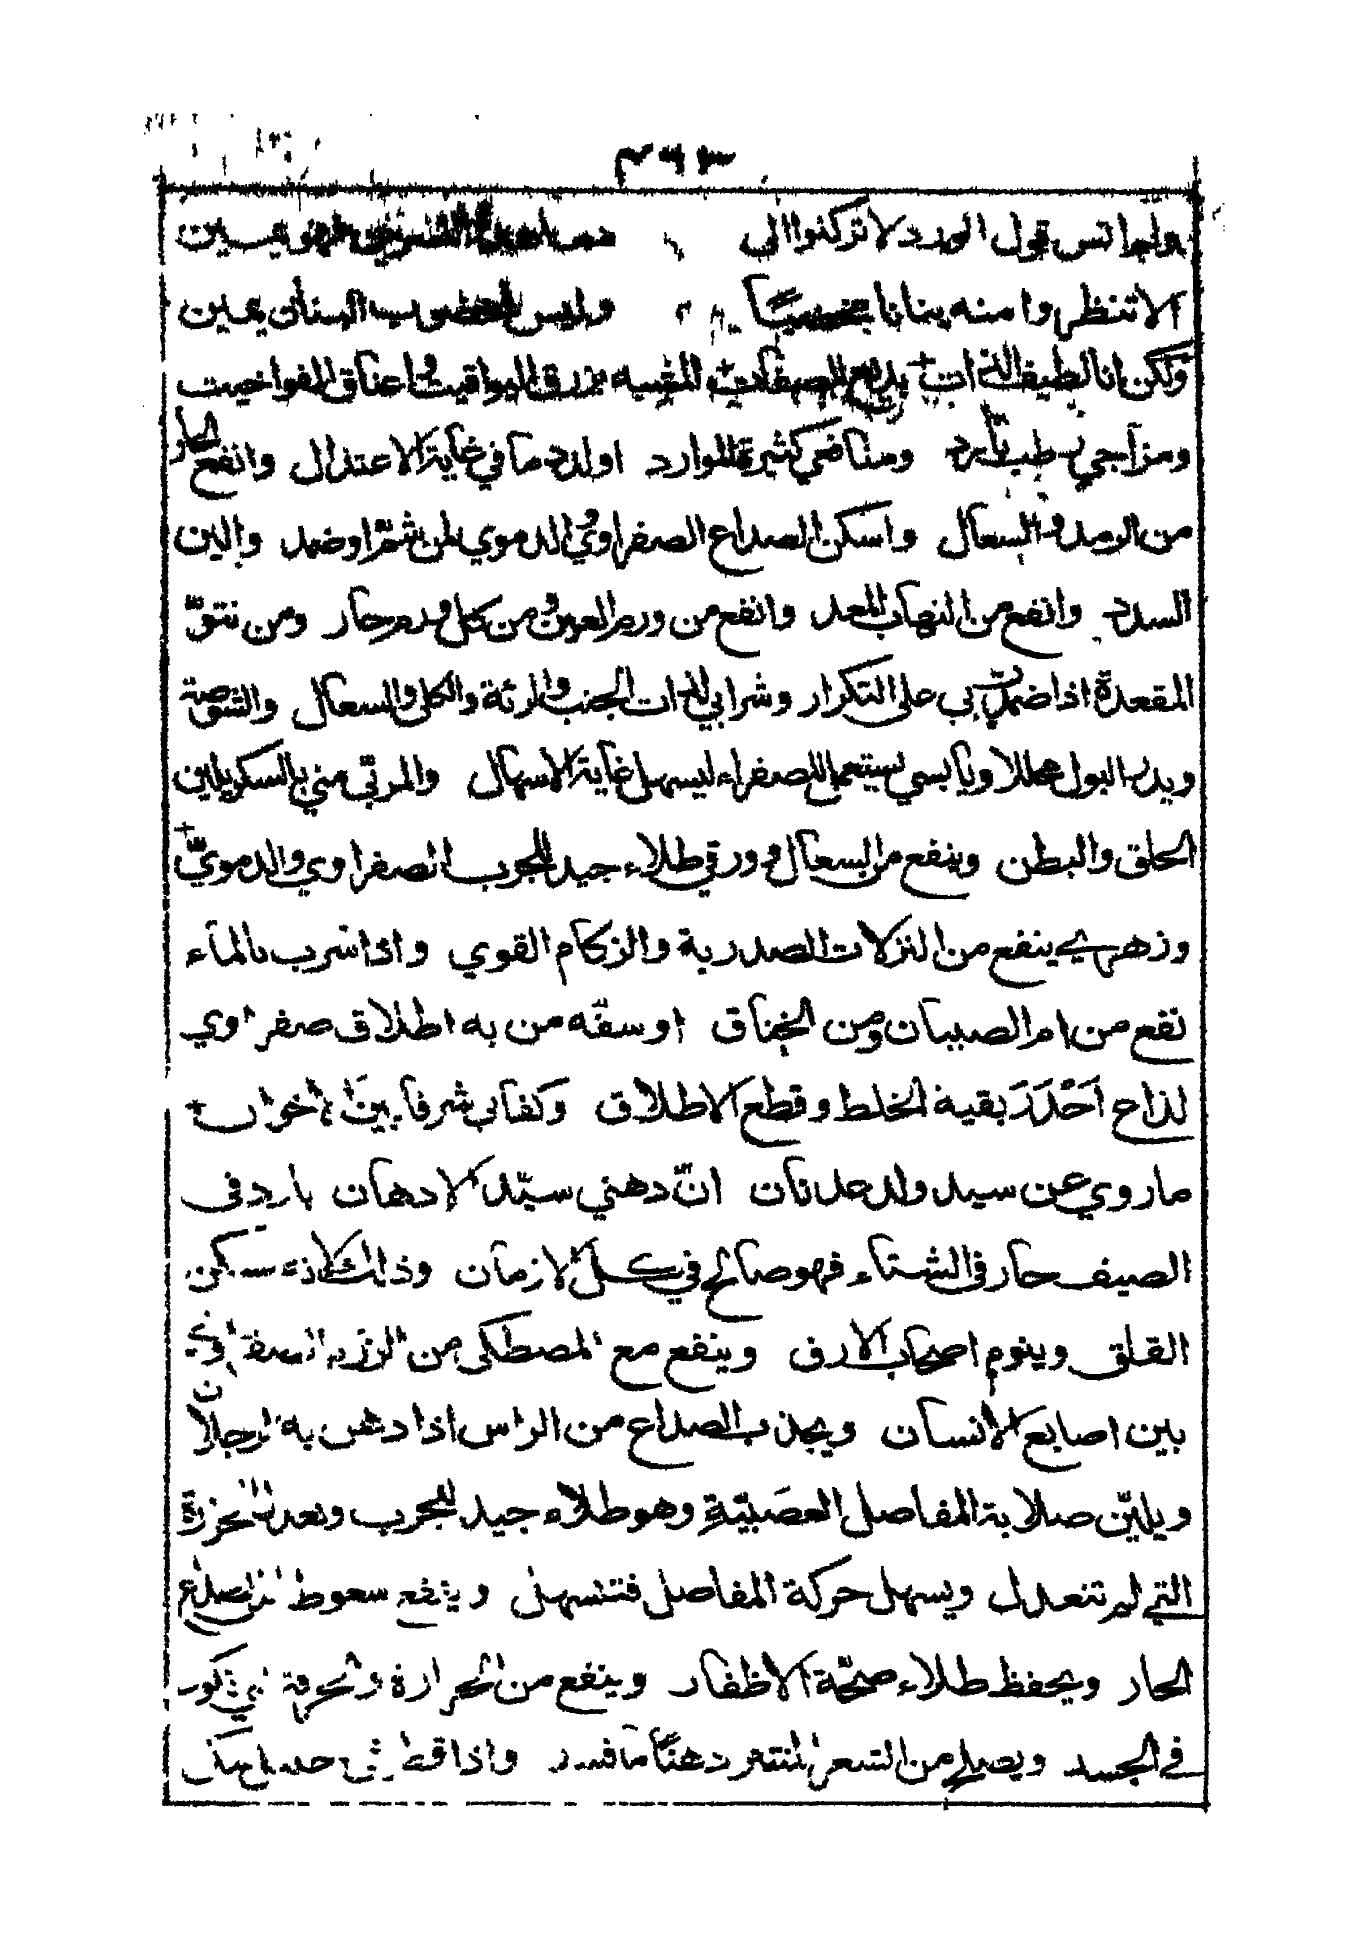 ولم انس قول الورد لا تركنوا الى
الا تنظروا منه بنانا وليس البنان يمين
ولكن انا اللطيف الذات بديع الصفات المشبه بزرق اليواقيت واعناق الفواخيت
ومزاجي رطب بارد ومنافعي كثيرة الموارد اولد دما في غاية الاعتدال وانفع الحار
من الرمد والسعال واسكن الصداع الصفراوي والدموي لمن شم او ضمد والين
السدد وانفع من التهاب المعد وانفع من ورم العين ومن كل ورم حار ومن نتوّ
المقعدة اذا ضمدت بي على التكرار وشرابي لذات الجنب والرئة والكلى والسعال والشوصة
ويدر البول ويابسي يستعمل للصفراء ليسهل غاية الاسهال والمربّى مني بالسكر يلين
الحلق والبطن وينفع من السعال وورقي طلاء جيد للجرب الصفراوي والدمويّ
وزهري ينفع من النزلات الصدرية والزكام القوي واذا شرب بالماء
نفع من ام الصبيان ومن الخناق او سفّه من به اطلاق صفراوي
لذاع احدر بقية الخلط وقطع الاطلاق وكفاني شرفا بين الاخوان
ما روي عن سيد ولد عدنان انّ دهني سيّد الادهان بارد في
الصيف حار في الشتاء فهو صالح في كل الازمان وذلك لانه يسكن
القلق وينوم اصحاب الارق وينفع مع المصطكى من
بين اصابع الانسان ويجذب الصداع من الراس اذا دهن به الرجلان
ويليّن صلابة المفاصل العصبيّة وهو طلاء جيد للجرب ويعدل الحرارة
التي لم تنعدل ويسهل حركة المفاصل فتنسهل وينفع سعوطا من الصداع
الحار ويحفظ طلاء صحّة الاظفار وينفع من الحرارة والحرقة
في الجسد ويصلح من الشعر المنتثر دهنًا ما فسد واذا قطر في